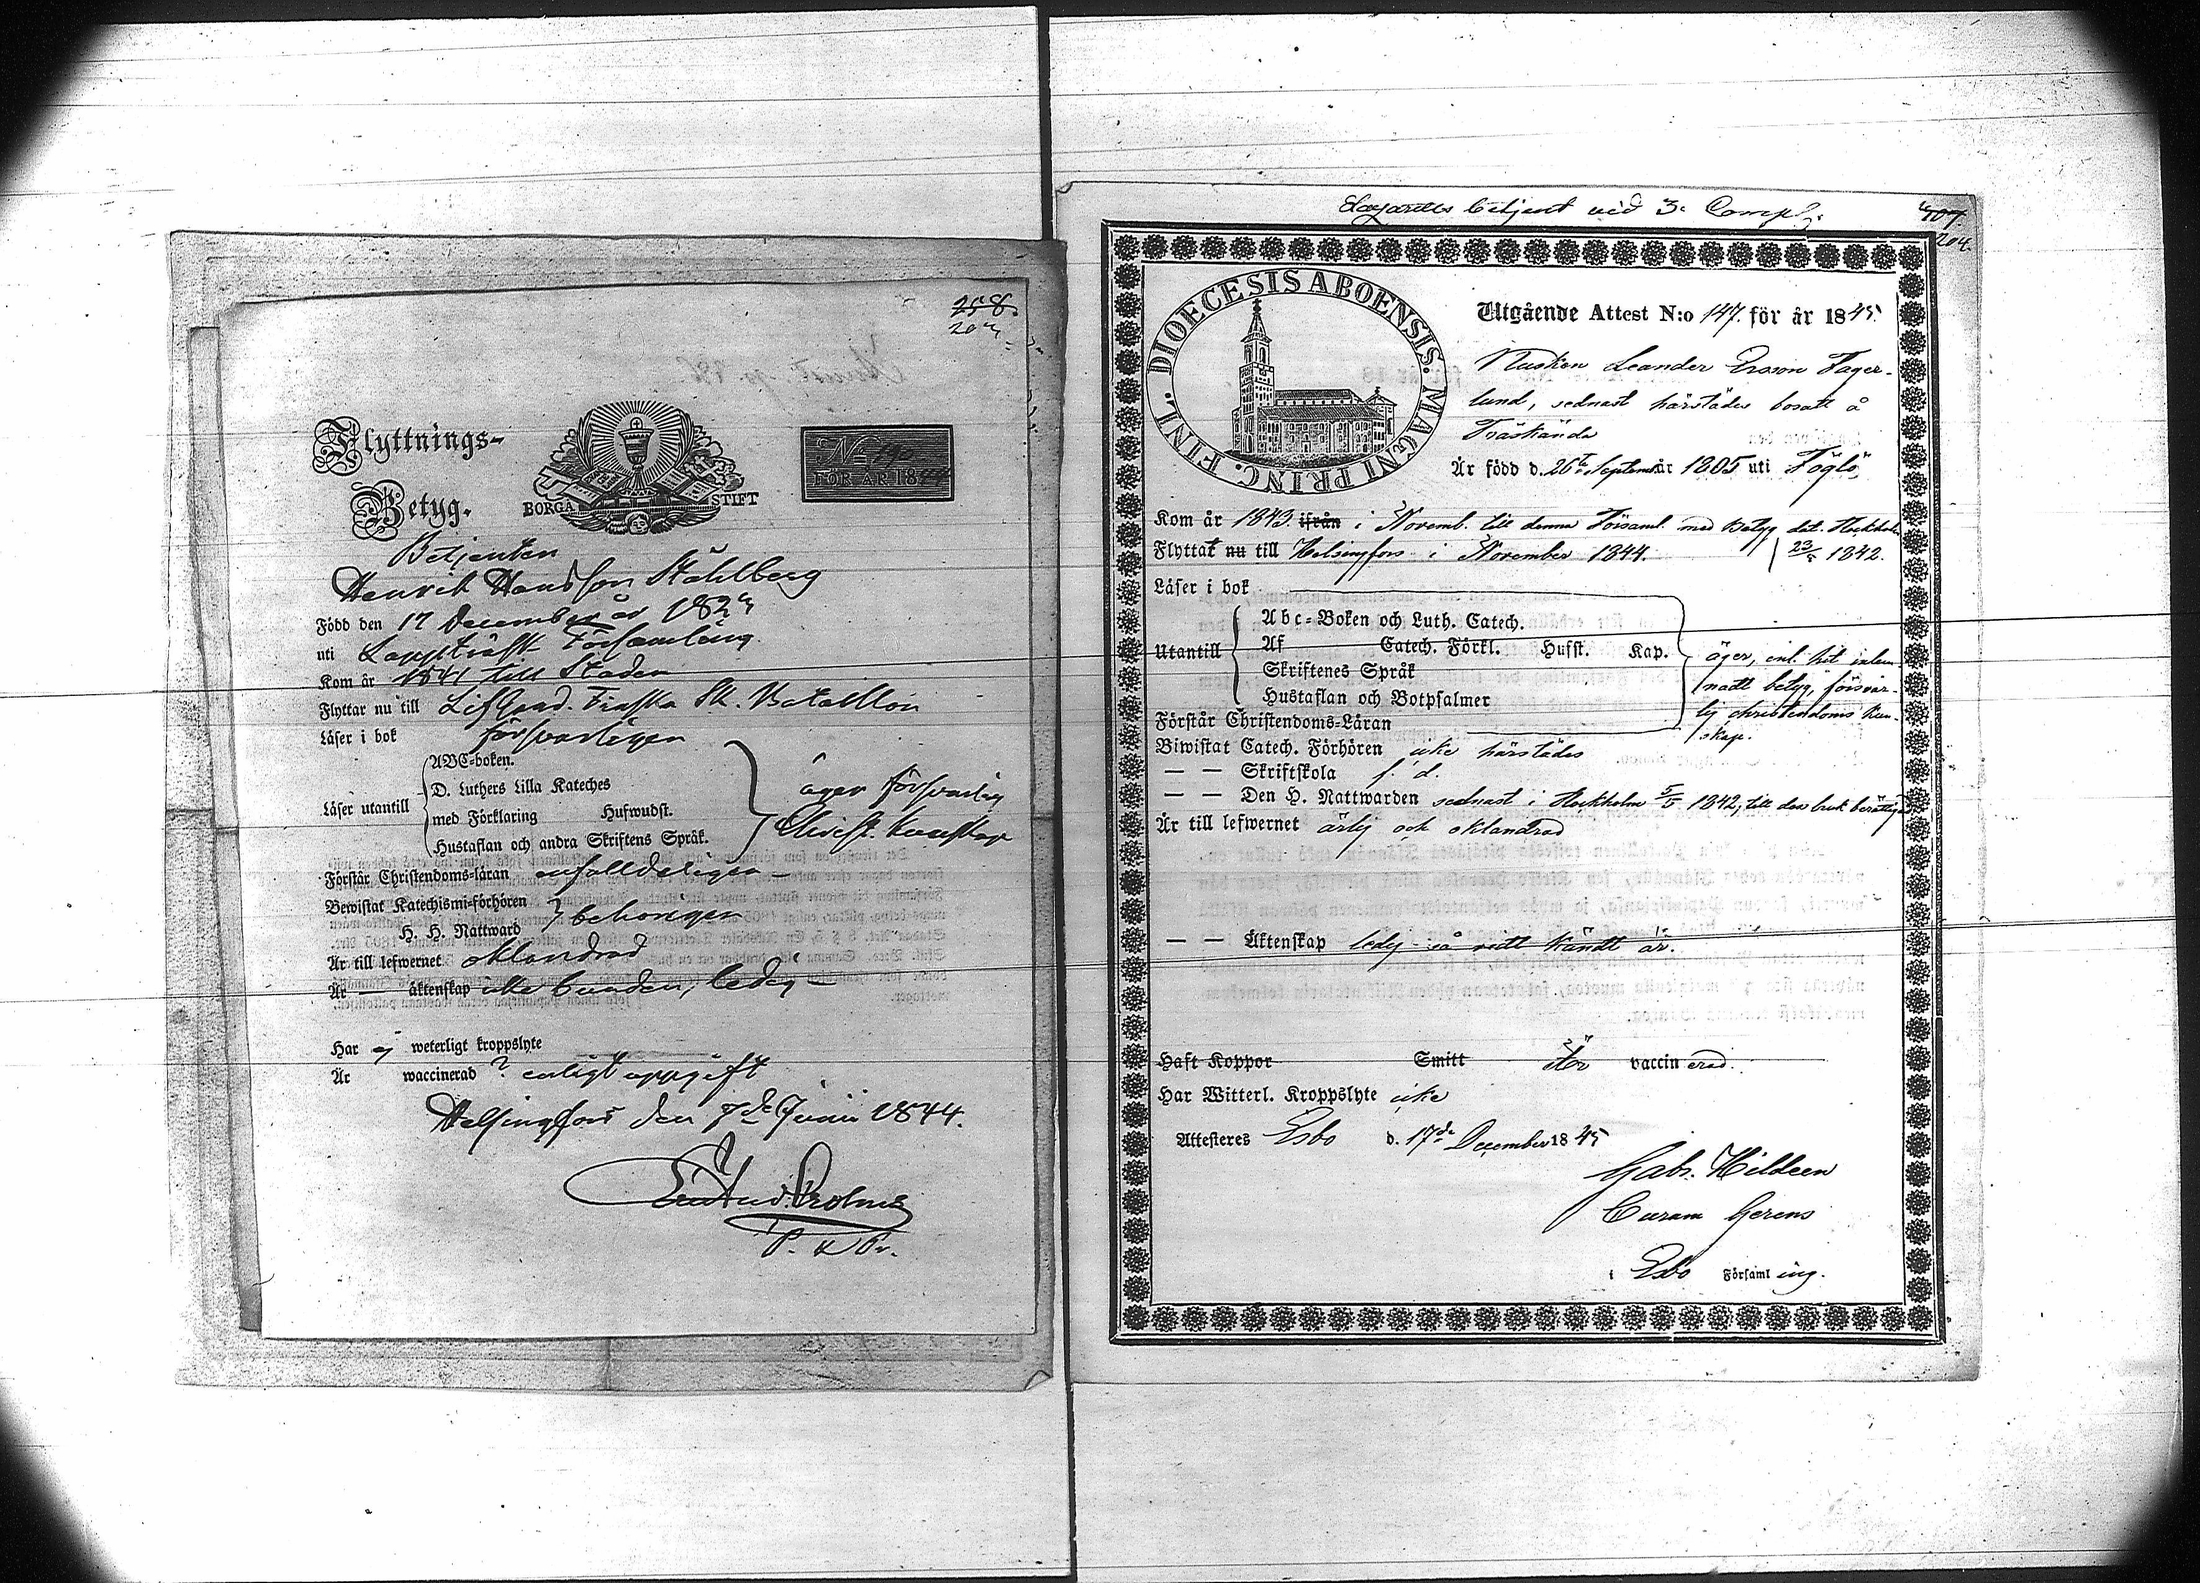 258.
203
Flyttnings-
Betyg.
BORGÅ STIFT
No 190
FÖR ÅR 1844
Betjenten
Henrik Hansson Ståhlberg
Född den 17 December år 1823
uti Lappträsk Församling
Kom år 1841 till Staden
Flyttar nu till Lif Gard. Finska Sk. Bataillon
Läser i bok försvarligen
ABC-boken.
D. Luthers Lilla Kateches
Läser utantill med Förklaring Hufwudst.
Hustaflan och andra Skriftens Språk.
äger försvarlig
Christ. Kunskap
Förstår Christendoms-läran enfalldeligen
Bewistat Katechismi-förhören
H. H. Nattward behörigen
Är till lefwernet oklandrad
Är äktenskap icke bunden, ledig
Har ej weterligt kroppslyte
Är waccinerad ? enligt uppgift
Helsingfors den 7de Junii 1844.
Lazaretts betjent vid 3. Comp.
407.
204.
DIOECESIS ABOENSIS. MAGNI PRINC. FINL.
Utgående Attest N:o 147. för år 1845
Kusken Leander Ersson Fager-
lund, sednast härstädes bosatt å
Träskända
Är född d. 26te September år 1805 uti Föglö
Kom år 1843 ifrån i Novemb. till denna Församl. med Betyg dat. Stockholm
Flyttat nu till Helsingfors i November 1844. 23/5 1842.
Läser i bok
Abc-Boken och Luth. Catech.
Utantill Af Catech. Förkl. Hufst. Kap.
Skriftenes Språk
Hustaflan och Botpsalmer
Förstår Christendoms-Läran
äger, enl. hit inlem-
nadt betyg, försvar-
lig christendoms kun-
skap.
Biwistat Catech. Förhören icke härstädes
— — Skriftskola f. d.
— — Den H. Nattwarden sednast i Stockholm 5/5 1842, till dess bruk berättigad
Är till lefwernet ärlig och oklandrad
— — Äktenskap ledig så vidt kändt är.
Haft Koppor Smitt Är vaccinerad.
Har Witterl. Kroppslyte icke
Attesteres Esbo d. 17de December 1845
Gabr. Hildeen
Curam Gerens
i Esbo Församling.